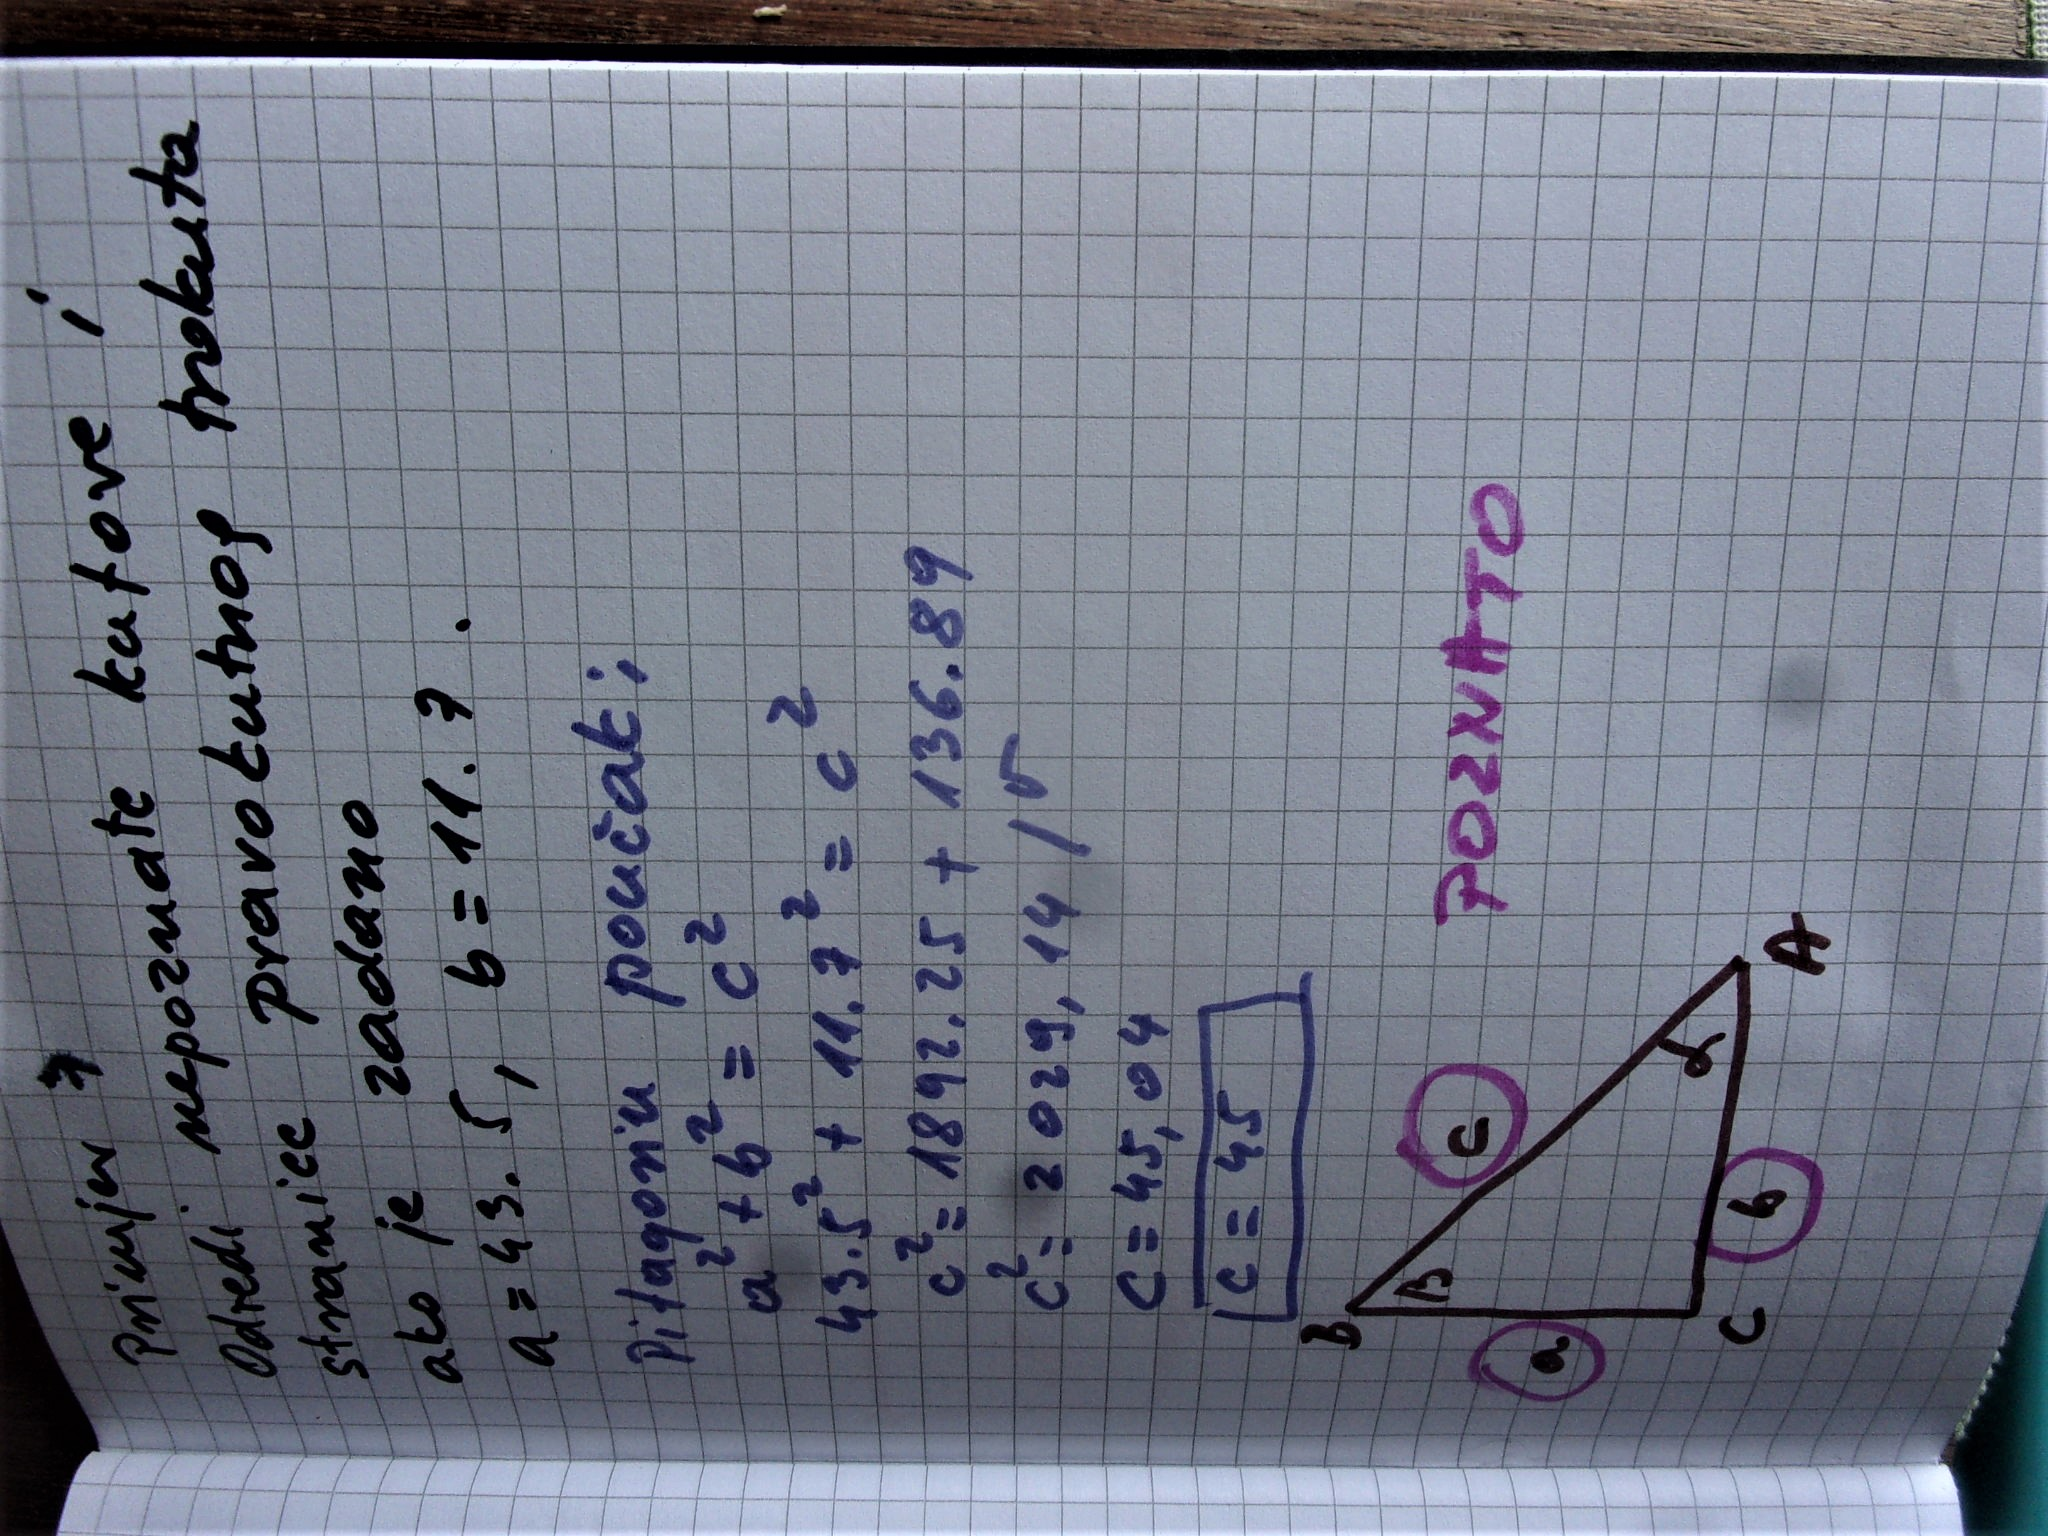 Primjer 7
Odredi nepoznate kutove i
stranice pravokutnog trokuta
ako je zadano
a = 43.5, b = 11.7.
Pitagorin poučak:
a² + b² = c²
43.5² + 11.7² = c²
c² = 1892.25 + 136.89
c² = 2029,14 /√
c = 45,04
c = 45
B
β
c
POZNATO
a
α
b
A
C